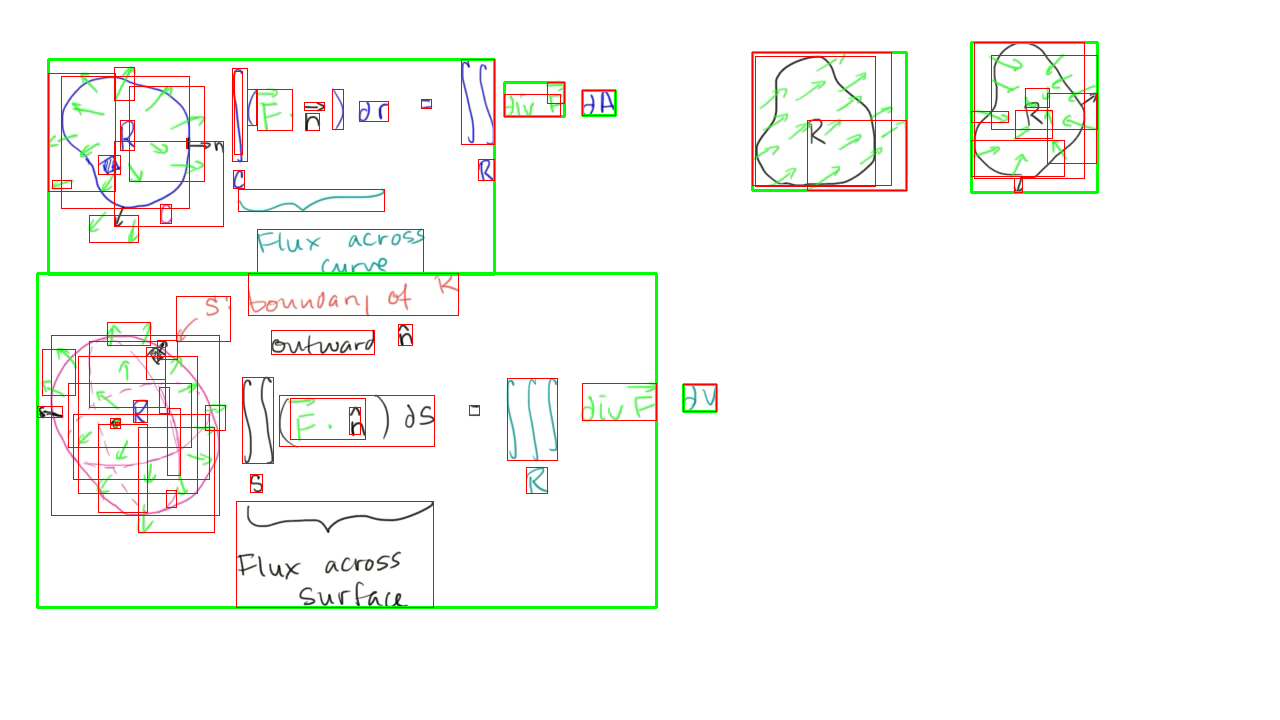 R
n
C
∫ ( F⃗ · n⃗ ) dr = ∬ div F⃗ dA
C
R
Flux across
curve
R
R
S: boundary of R
outward n̂
R
∬ ( F⃗ · n̂ ) dS = ∭ div F⃗ dV
S
R
Flux across
surface